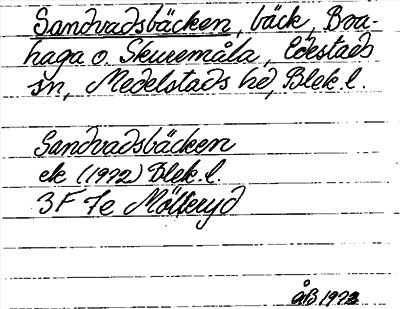 Sandvadsbäcken, bäck, Bra-
haga o. Skuremåla, Edestads
sn, Medelstads hd, Blek. l.
Sandvadsbäcken
ek (1922) Blek. l.
3F 7e Mölleryd
åB 1973